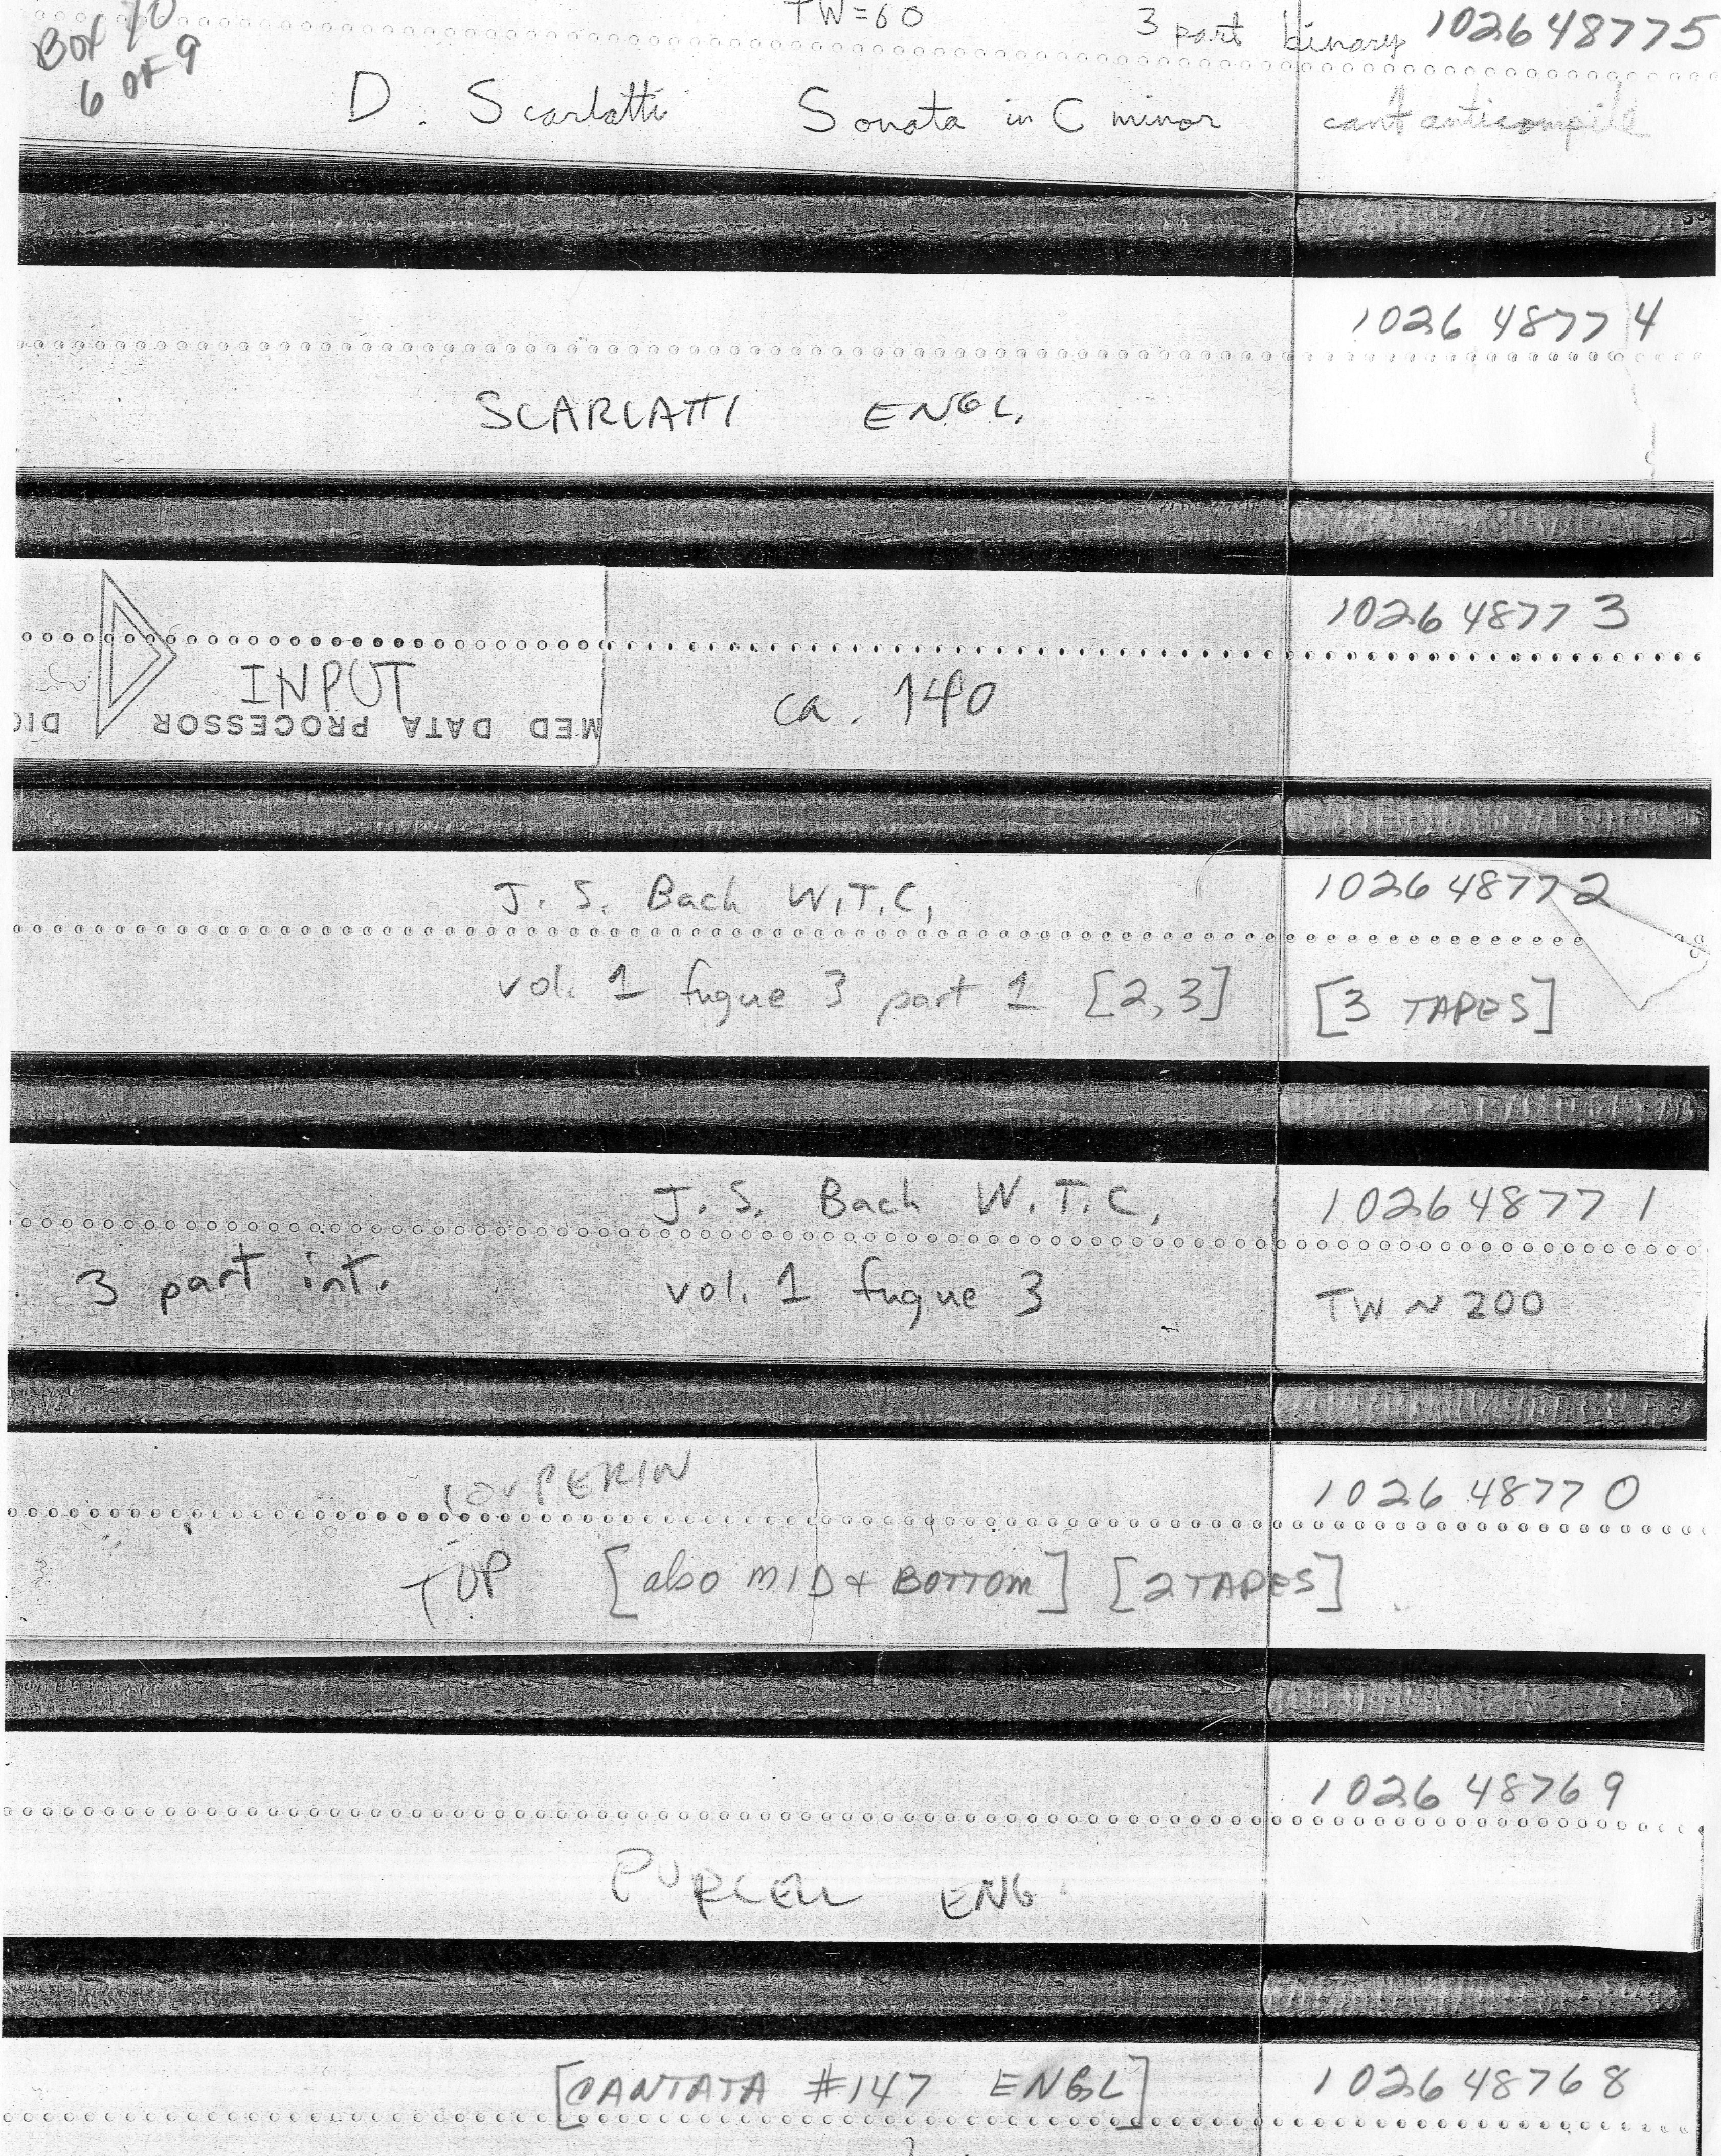 BOX 10
6 OF 9
TW=60
3 part binary 102648775
D. Scarlatti Sonata in C minor
can't anticompile
102648774
SCARLATTI ENGL.
102648773
INPUT
ca. 140
DIG
MED DATA PROCESSOR
102648772
J. S. Bach W.T.C.
vol. 1 fugue 3 part 1 [2,3]
[3 TAPES]
102648771
J. S. Bach W.T.C.
3 part int. vol. 1 fugue 3
TW ~ 200
COUPERIN
102648770
TOP [also MID + BOTTOM] [2 TAPES]
102648769
PURCELL ENG
[CANTATA #147 ENGL]
102648768